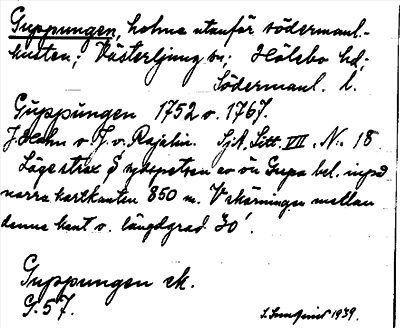 Guppungen, holme utanför södermanl.-
kusten; Västerljung sn; Hölebo hd;
Södermanl. l.
Guppungen 1752 o. 1767.
J. Hahn o. J. v. Rajalin. Sjk. Litt. VII. N: 18
Läge strax S sydspetsen av ön Gupa bel. inpå
norra kartkanten 850 m. V skärningen mellan
denna kant o. längdgrad 30'.
Guppungen ek.
G. 57.
1939.